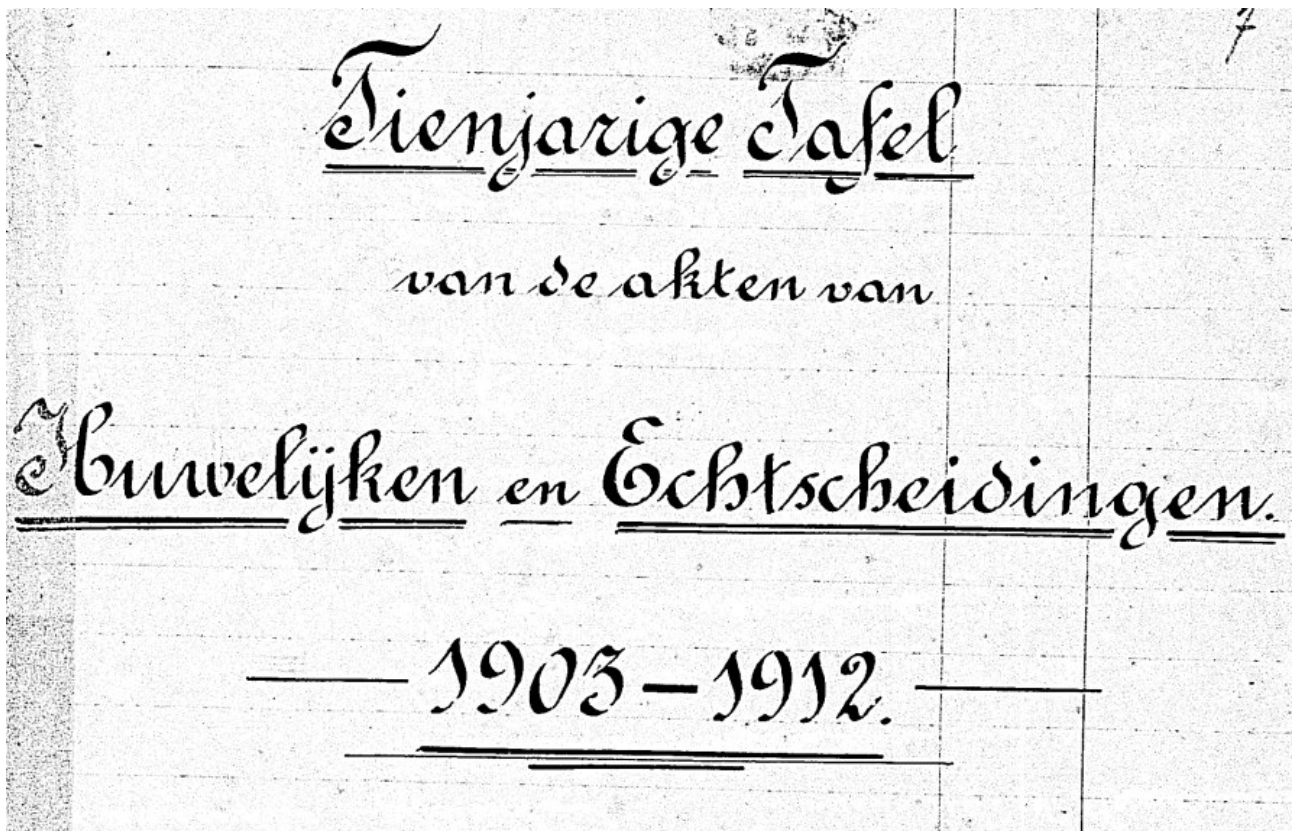 7
Tienjarige Tafel
van de akten van
Huwelijken en Echtscheidingen.
1903 - 1912.